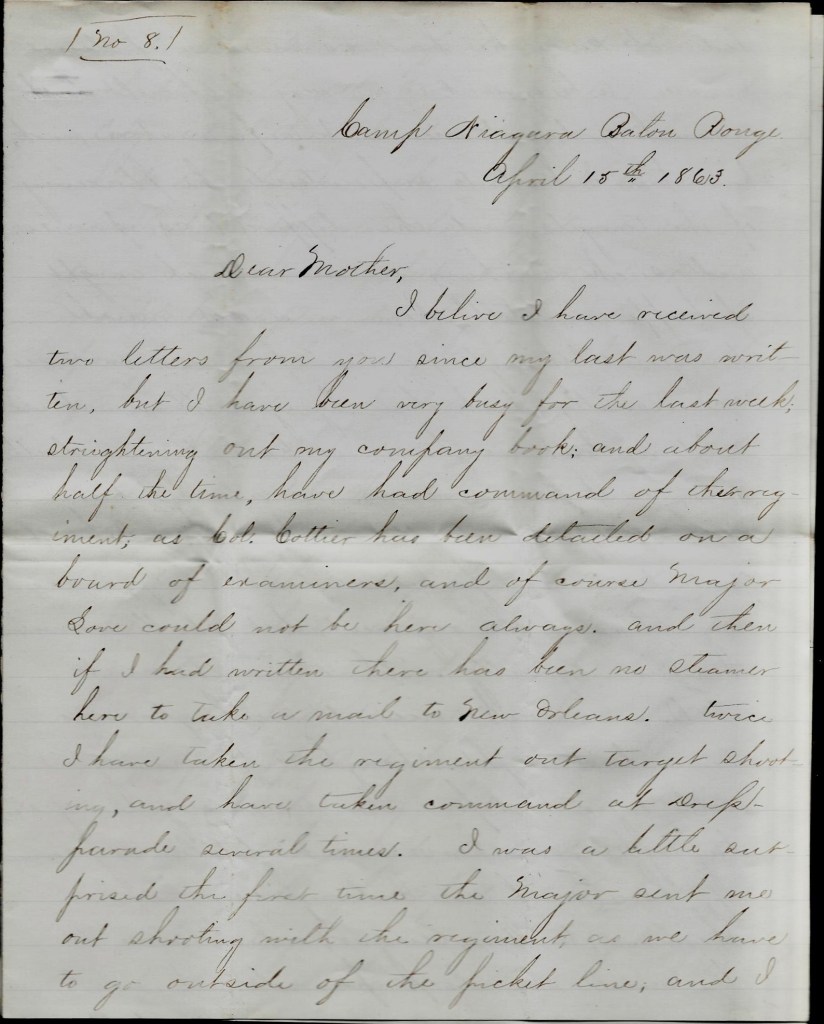 No 8.
Camp Niagara Baton Rouge
April 15th 1863.
Dear Mother,
I belive I have received
two letters from you since my last was writ-
ten, but I have been very busy for the last week;
strightening out my company book; and about
half the time, have had command of the reg-
iment; as Col. Cottier has been detailed on a
board of examiners, and of course Major
Love could not be here always. and then
if I had written there has been no steamer
here to take a mail to New Orleans. twice
I have taken the regiment out target shoot-
ing, and have taken command at Dress-
parade several times. I was a little sur-
prised the first time the Major sent me
out shooting with the regiment, as we have
to go outside of the picket line; and I